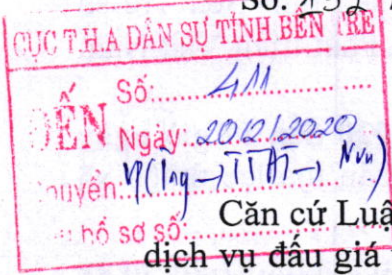 Số:
CỤC T.H.A DÂN SỰ TỈNH BẾN TRE
ĐẾN
Số:.....411
Ngày:..20/2/2020
Chuyển:
hồ sơ số:
Căn cứ Luậ
dịch vụ đấu giá